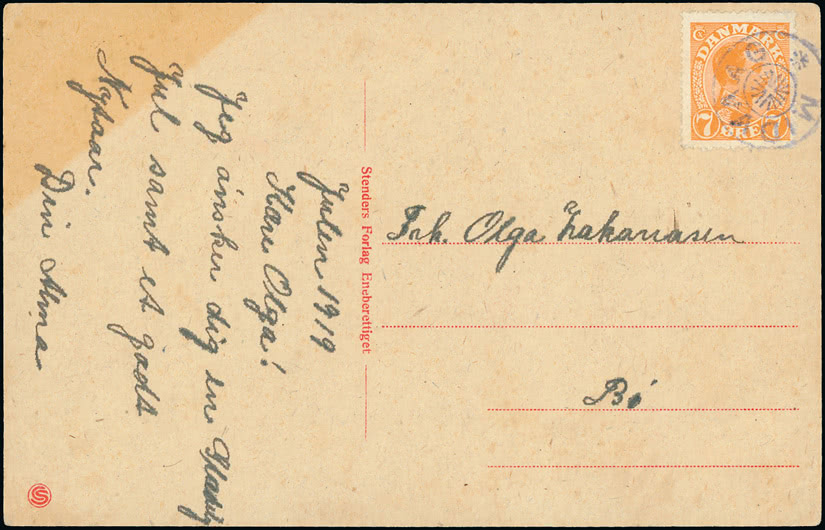 Julen 1919
Kære Olga!
Jeg ønsker dig en Glædelig
Jul samt et godt
Nytaar.
Din Alma
Stenders Forlag Eneberettiget
DANMARK
7 ØRE 7
Frk. Olga Zakariasen
Bø